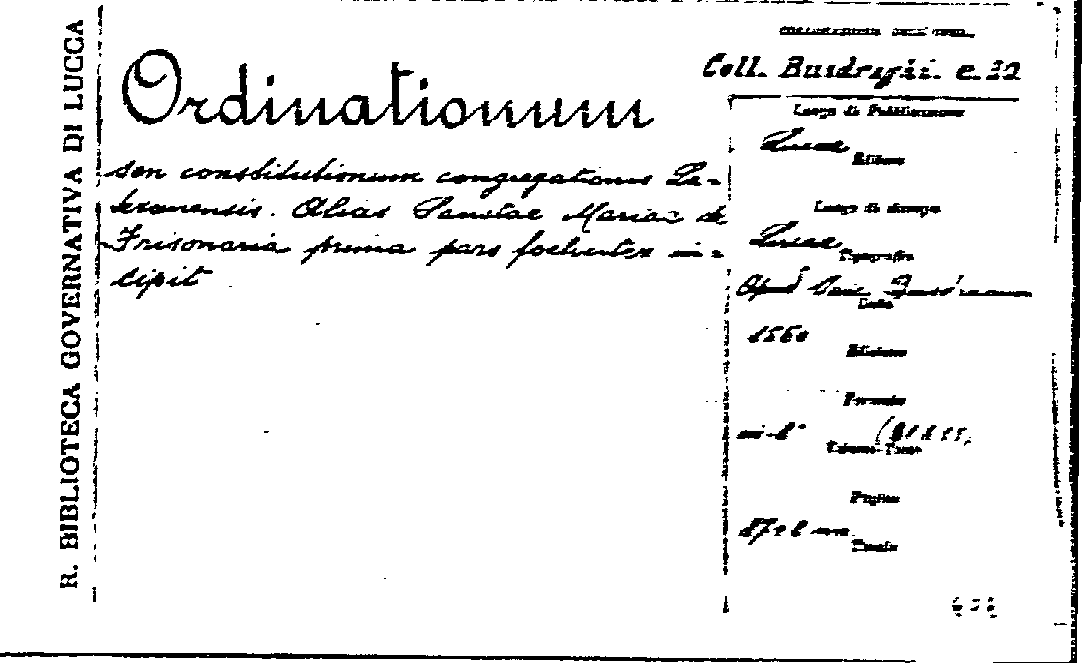 R. BIBLIOTECA GOVERNATIVA DI LUCCA
Ordinationum
seu constitutionum congregationis La-
teranensis. Alias Sanctae Mariae de
Frisonaria prima pars foeliciter in-
cipit
Coll. Busdraghi. c. 32
Luogo di Pubblicazione
Lucae
Editore
Luogo di stampa
Lucae
Tipografo
Apud Vinc. Busdracum
Data
1560
Edizione
Formato
in-8°
Volume-Tomo
Pagine
Tavole